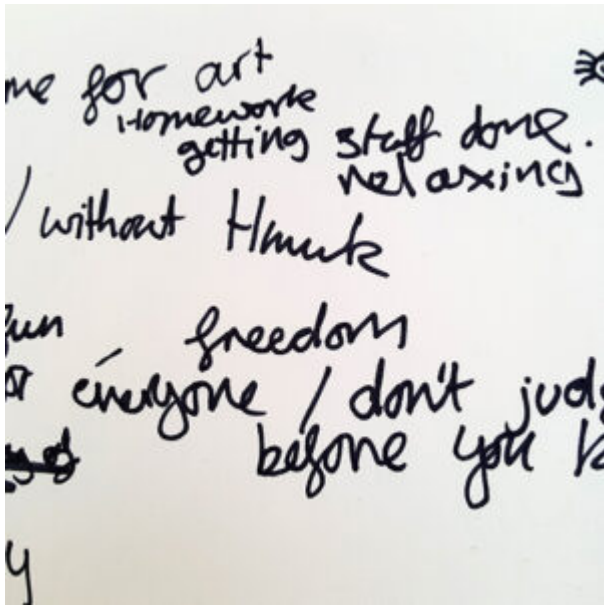 me for art
Homework
getting stuff done.
relaxing
/ without Hmwk
fun freedom
or everyone / don't judg
before you k
y